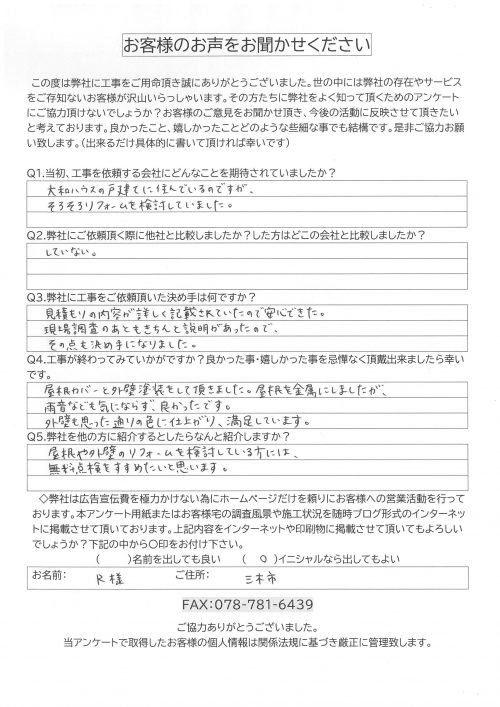 お客様のお声をお聞かせください
この度は弊社に工事をご用命頂き誠にありがとうございました。世の中には弊社の存在やサービス
をご存知ないお客様が沢山いらっしゃいます。その方たちに弊社をよく知って頂くためのアンケート
にご協力頂けないでしょうか？お客様のご意見をお聞かせ頂き、今後の活動に反映させて頂きたい
と考えております。良かったこと、嬉しかったことどのような些細な事でも結構です。是非ご協力お願
い致します。（出来るだけ具体的に書いて頂ければ幸いです）
Q1.当初、工事を依頼する会社にどんなことを期待されていましたか？
大和ハウスの戸建てに住んでいるのですが、
そろそろリフォームを検討していました。
Q2.弊社にご依頼頂く際に他社と比較しましたか？した方はどこの会社と比較しましたか？
していない。
Q3.弊社に工事をご依頼頂いた決め手は何ですか？
見積もりの内容が詳しく記載されていたので安心できた。
現場調査のあともきちんと説明があったので、
その点も決め手になりました。
Q4.工事が終わってみていかがですか？良かった事・嬉しかった事を忌憚なく頂戴出来ましたら幸い
です。
屋根カバーと外壁塗装をして頂きました。屋根を金属にしましたが、
雨音なども気にならず、良かったです。
外壁も思った通りの色に仕上がり、満足しています。
Q5.弊社を他の方に紹介するとしたらなんと紹介しますか？
屋根や外壁のリフォームを検討している方には、
無料点検をすすめたいと思います。
◇弊社は広告宣伝費を極力かけない為にホームページだけを頼りにお客様への営業活動を行って
おります。本アンケート用紙またはお客様宅の調査風景や施工状況を随時ブログ形式のインターネッ
トに掲載させて頂いております。上記内容をインターネットや印刷物に掲載させて頂いてもよろしい
でしょうか？下記の中から〇印をお付け下さい。
（ ）名前を出しても良い （ ○ ）イニシャルなら出してもよい
お名前： R 様 ご住所： 三木市
FAX：078-781-6439
ご協力ありがとうございました。
当アンケートで取得したお客様の個人情報は関係法規に基づき厳正に管理致します。